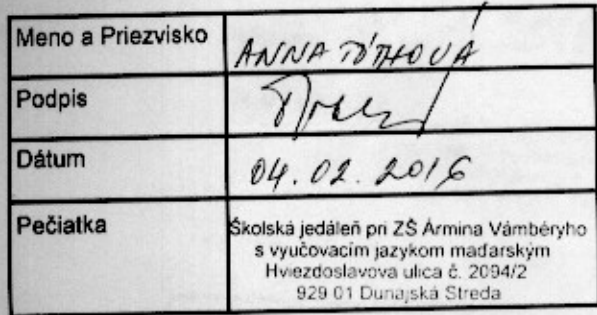 Meno a Priezvisko
ANNA TÓTHOVÁ
Podpis
Dátum
04.02.2016
Pečiatka
Školská jedáleň pri ZŠ Ármina Vámbéryho
s vyučovacím jazykom maďarským
Hviezdoslavova ulica č. 2094/2
929 01 Dunajská Streda